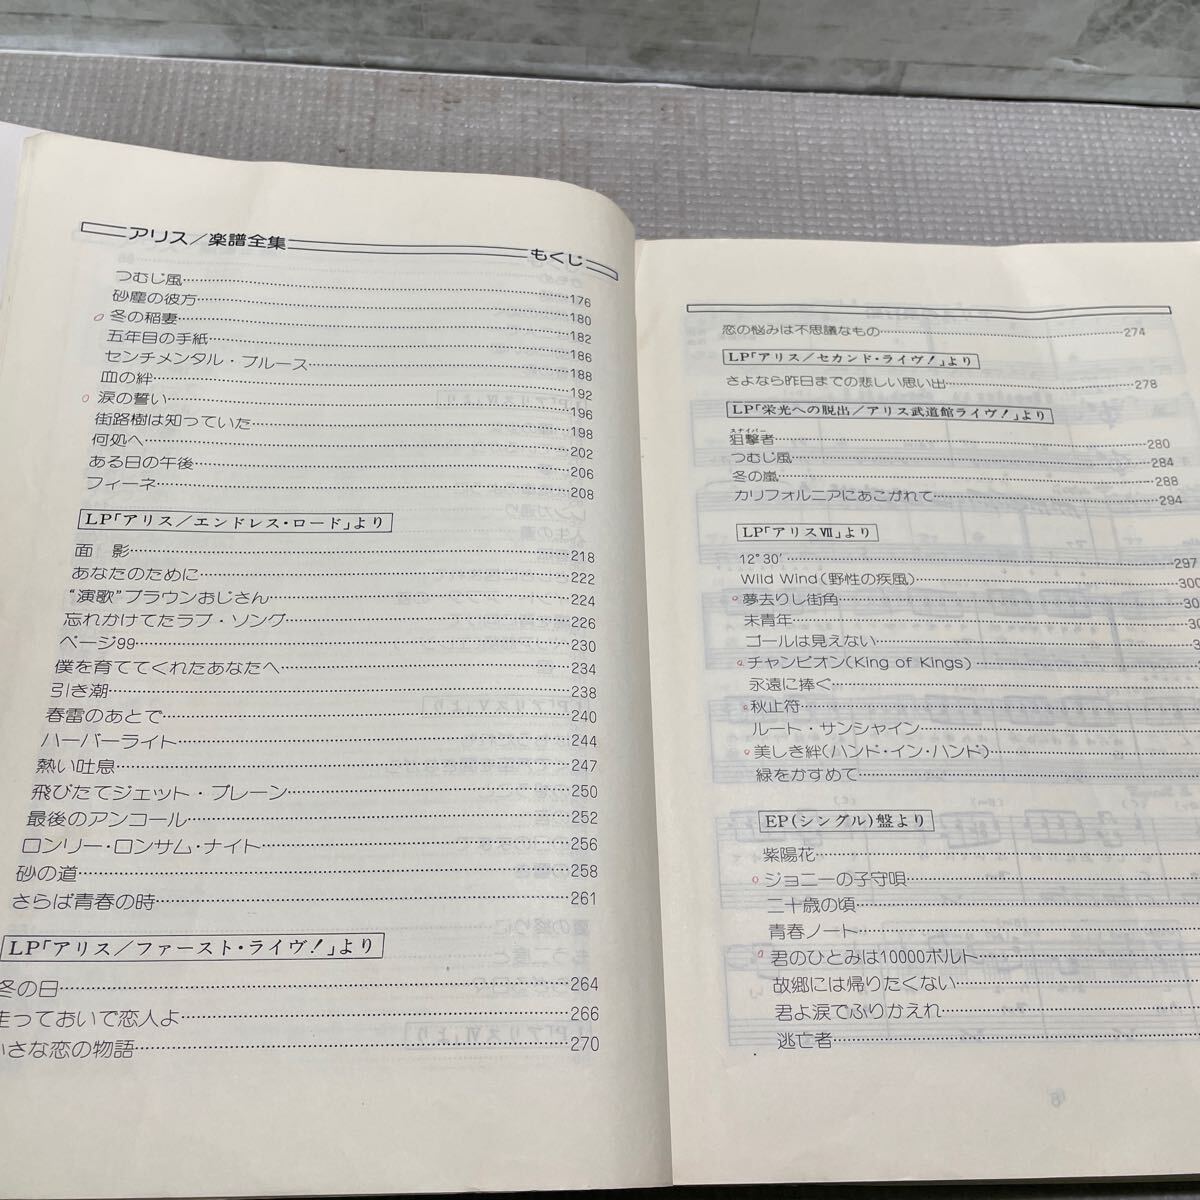 アリス／楽譜全集
もくじ
つむじ風 176
砂塵の彼方 180
冬の稲妻 182
五年目の手紙 186
センチメンタル・ブルース 188
血の絆 192
涙の誓い 196
街路樹は知っていた 198
何処へ 202
ある日の午後 206
フィーネ 208
LP「アリス／エンドレス・ロード」より
面 影 218
あなたのために 222
“演歌”ブラウンおじさん 224
忘れかけてたラブ・ソング 226
ページ99 230
僕を育ててくれたあなたへ 234
引き潮 238
春雷のあとで 240
ハーバーライト 244
熱い吐息 247
飛びたてジェット・プレーン 250
最後のアンコール 252
ロンリー・ロンサム・ナイト 256
砂の道 258
さらば青春の時 261
LP「アリス／ファースト・ライヴ！」より
冬の日 264
走っておいで恋人よ 266
さな恋の物語 270
恋の悩みは不思議なもの 274
LP「アリス／セカンド・ライヴ！」より
さよなら昨日までの悲しい思い出 278
LP「栄光への脱出／アリス武道館ライヴ！」より
スナイパー
狙撃者 280
つむじ風 284
冬の嵐 288
カリフォルニアにあこがれて 294
LP「アリスⅦ」より
12°30′ 297
Wild Wind（野性の疾風） 300
夢去りし街角 30
未青年 30
ゴールは見えない 3
チャンピオン（King of Kings）
永遠に捧ぐ
秋止符
ルート・サンシャイン
美しき絆（ハンド・イン・ハンド）
緑をかすめて
EP（シングル）盤より
紫陽花
ジョニーの子守唄
二十歳の頃
青春ノート
君のひとみは10000ボルト
故郷には帰りたくない
君よ涙でふりかえれ
逃亡者